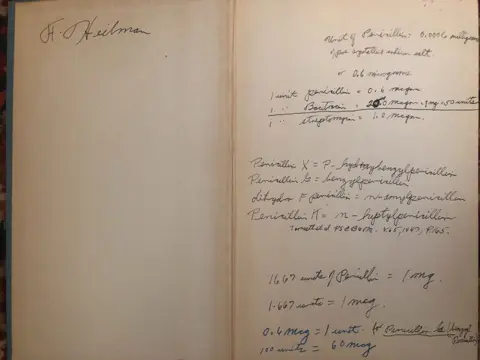 F. Heilman
Unit of Penicillin = 0.0006 milligrams
of pure crystalline sodium salt
or 0.6 micrograms
1 unit penicillin = 0.6 mcgm
1 " Bacitracin = 20.0 mcgm = 1 mg = 50 units
1 " streptomycin = 1.0 mcgm.
Penicillin X = p-hydroxybenzylpenicillin
Penicillin G = benzylpenicillin
Dihydro F penicillin = n-amylpenicillin
Penicillin K = n-heptylpenicillin
1667 units of Penicillin = 1 mg.
1.667 units = 1 mcg.
0.6 mcg = 1 unit for Penicillin G (benzyl
100 units = 60 mcg